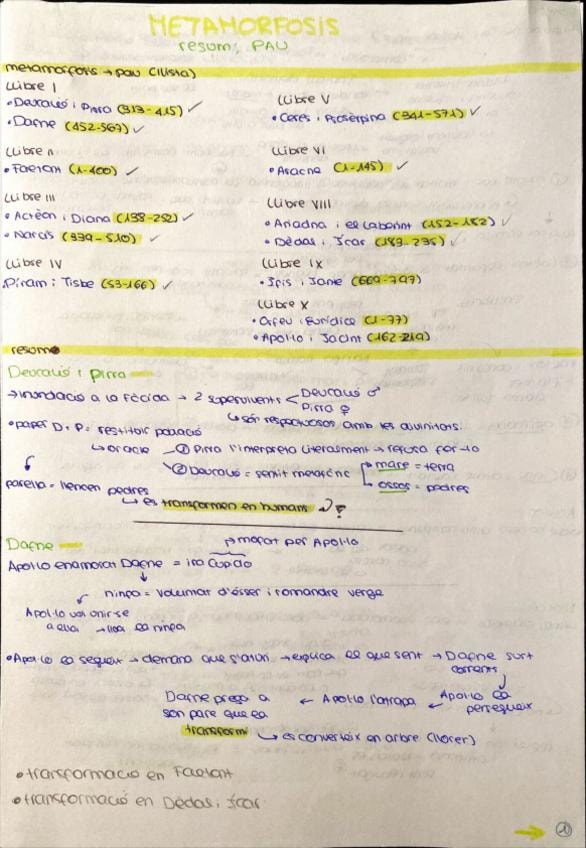 METAMORFOSIS
resum; PAU
metamorfosis → PAU (llista)
Llibre I
• Deucalió i Pirra (313-415) ✓
• Dafne (452-567) ✓
Llibre II
• Faetont (1-400) ✓
Llibre III
• Actèon i Diana (138-252) ✓
• Narcís (339-510) ✓
Llibre IV
Píram i Tisbe (53-166) ✓
Llibre V
• Ceres i Prosèrpina (341-571) ✓
Llibre VI
• Aracne (1-145) ✓
Llibre VIII
• Ariadna i el Laberint (152-182) ✓
• Dèdal i Ícar (183-235) ✓
Llibre IX
• Ifis i Iante (669-797)
Llibre X
• Orfeu i Eurídice (1-77)
• Apol·lo i Jacint (162-219)
resum
Deucalió i Pirra
→ inundació a la Fòcida → 2 supervivents < Deucalió ♂
Pirra ♀
↳ són respectuosos amb les divinitats.
• paper D. P. = restituir població
↳ oracle → ① Pirra l'interpreta literalment → refusa fer-lo
② Deucalió = sentit metafòric → mare = terra
ossos = pedres
parella = llencen pedres
↳ es transformen en humans ?
Dafne
→ mofat per Apol·lo
Apol·lo enamorat Dafne = ira Cupido
ninfa = voluntat d'ésser i romandre verge
Apol·lo vol unir-se
a ella → la ninfa
• Apol·lo la segueix → demana que s'aturi → explica el que sent → Dafne surt
corrents
Apol·lo la
persegueix
← Apol·lo l'atrapa ←
Dafne prega a
son pare que la
transformi ↳ es converteix en arbre (llorer)
• transformació en Faetont
• transformació en Dèdal i Ícar
→ ①